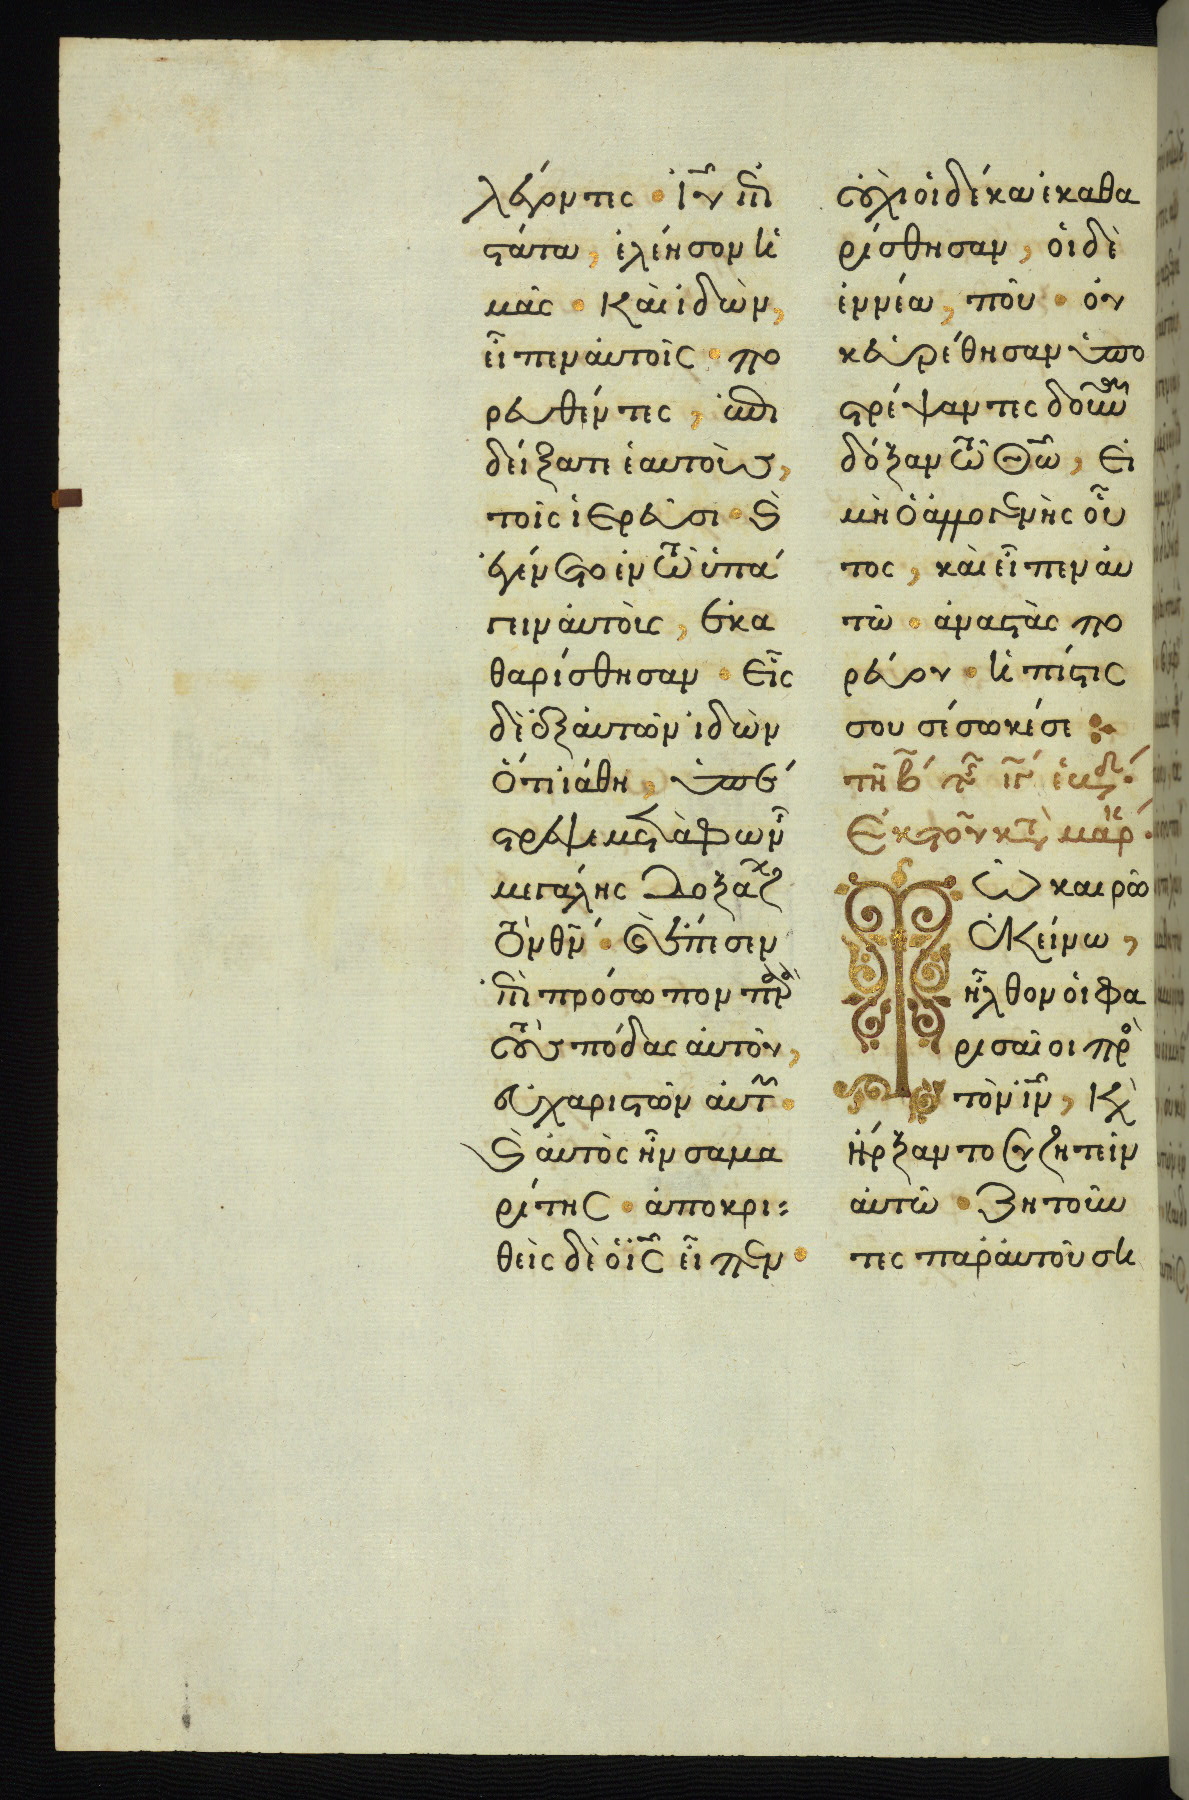 λέγοντες · ἰῦ ἐπι
στάτα, ἐλέησον ἡ
μᾶς · Καὶ ἰδὼν,
εἶπεν αὐτοῖς · πο
ρευθέντες, ἐπι
δείξατε ἑαυτοὺς,
τοῖς ἱερεῦσι · καὶ
ἐγένετο ἐν τῷ ὑπά
γειν αὐτοὺς, ἐκα
θαρίσθησαν · Εἷς
δὲ ἐξ αὐτῶν ἰδὼν
ὅτι ἰάθη, ὑπέ
στρεψε μετὰ φωνῆς
μεγάλης δοξάζων
τὸν θν · καὶ ἔπεσεν
ἐπὶ πρόσωπον παρὰ
τοὺς πόδας αὐτοῦ,
εὐχαριστῶν αὐτῷ ·
καὶ αὐτὸς ἦν σαμα
ρίτης · ἀποκρι
θεὶς δὲ ὁ ἰς εἶπεν ·
οὐχὶ οἱ δέκα ἐκαθα
ρίσθησαν, οἱ δὲ
ἐννέα, ποῦ · οὐχ
εὑρέθησαν ὑπο
στρέψαντες δοῦναι
δόξαν τῷ Θῶ, Εἰ
μὴ ὁ ἀλλογενὴς οὗ
τος, καὶ εἶπεν αὐ
τῷ · ἀναστὰς πο
ρεύου · ἡ πίστις
σου σέσωκέ σε
τῇ β΄ τῆς ιγ΄ ἑβδ.
Ἐκ τοῦ κατὰ μάρκ.
Τῷ καιρῷ
ἐκείνω,
ἦλθον οἱ φα
ρισαῖοι πρὸς
τὸν ἰν, καὶ
ἤρξαντο συζητεῖν
αὐτῷ · Ζητοῦν
τες παρ' αὐτοῦ ση